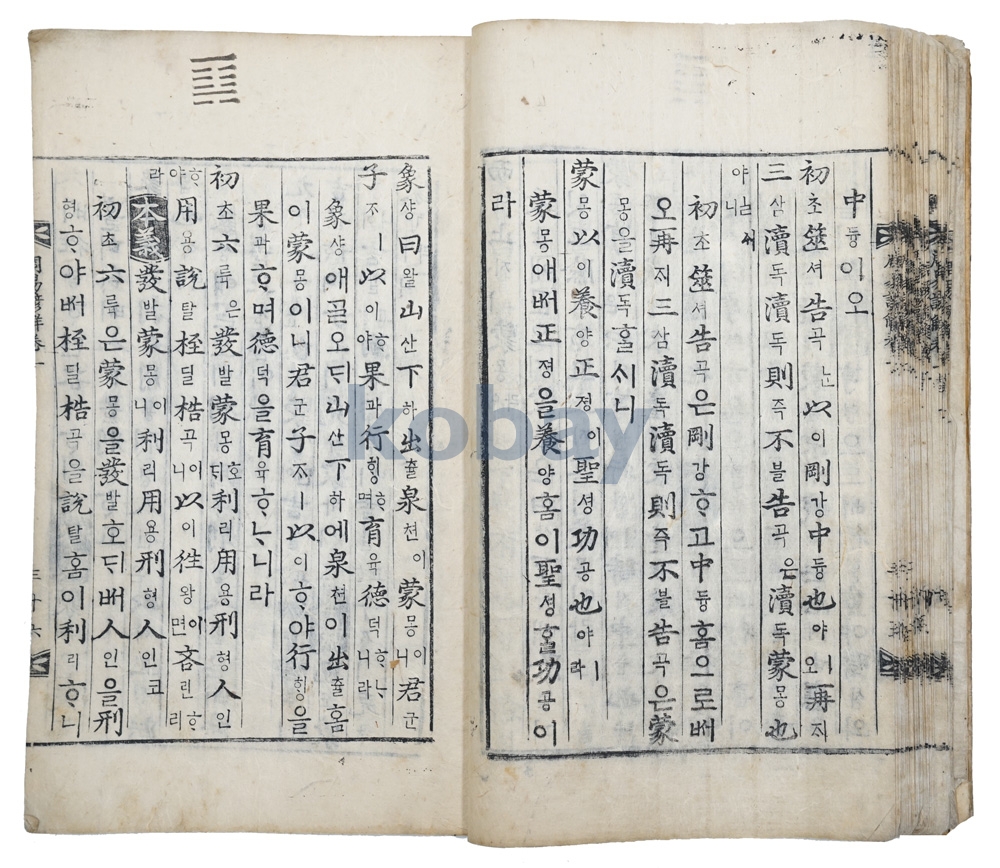 中듕이오
初초筮셔告곡ᄂᆞᆫ以이剛강中듕也야ㅣ오再ᄌᆡ
三삼瀆독瀆독則즉不블告곡은瀆독蒙몽也
야
初초筮셔告곡은剛강ᄒᆞ고中듕홈으로ᄡᅥ
오再ᄌᆡ三삼瀆독瀆독則즉不블告곡은蒙
몽을瀆독ᄒᆞᆯᄉᆡ니
蒙몽以이養양正졍이聖셩功공也야ㅣ라
蒙몽애ᄡᅥ正졍을養양홈이聖셩ᄒᆞᆯ功공이
라
象샹曰왈山산下하出츌泉쳔이蒙몽이니君군
子ᄌᆞㅣ以이ᄒᆞ야果과行ᄒᆡᆼᄒᆞ며育육德덕ᄒᆞᄂᆞ니라
象샹애ᄀᆞᆯ오ᄃᆡ山산下하에泉쳔이出츌홈
이蒙몽이니君군子ᄌᆞㅣ以이ᄒᆞ야行ᄒᆡᆼ을
果과ᄒᆞ며德덕을育육ᄒᆞᄂᆞ니라
初초六륙은發발蒙몽호ᄃᆡ利리用용刑형人인
ᄒᆞ야用용說탈桎딜梏곡이니以이往왕이면吝린ᄒᆞ리
라
本義發발蒙몽이니利리用용刑형人인코
初초六륙은蒙몽을發발호ᄃᆡᄡᅥ人인을刑
형ᄒᆞ야ᄡᅥ桎딜梏곡을說탈홈이利리ᄒᆞ니
周易諺解卷一
三十六
kobay